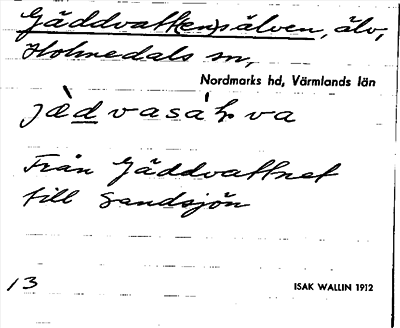 Gäddvattensälven, älv,
Holmedals sn,
Nordmarks hd, Värmlands län
Från Gäddvattnet
till Sandsjön
13
ISAK WALLIN 1912